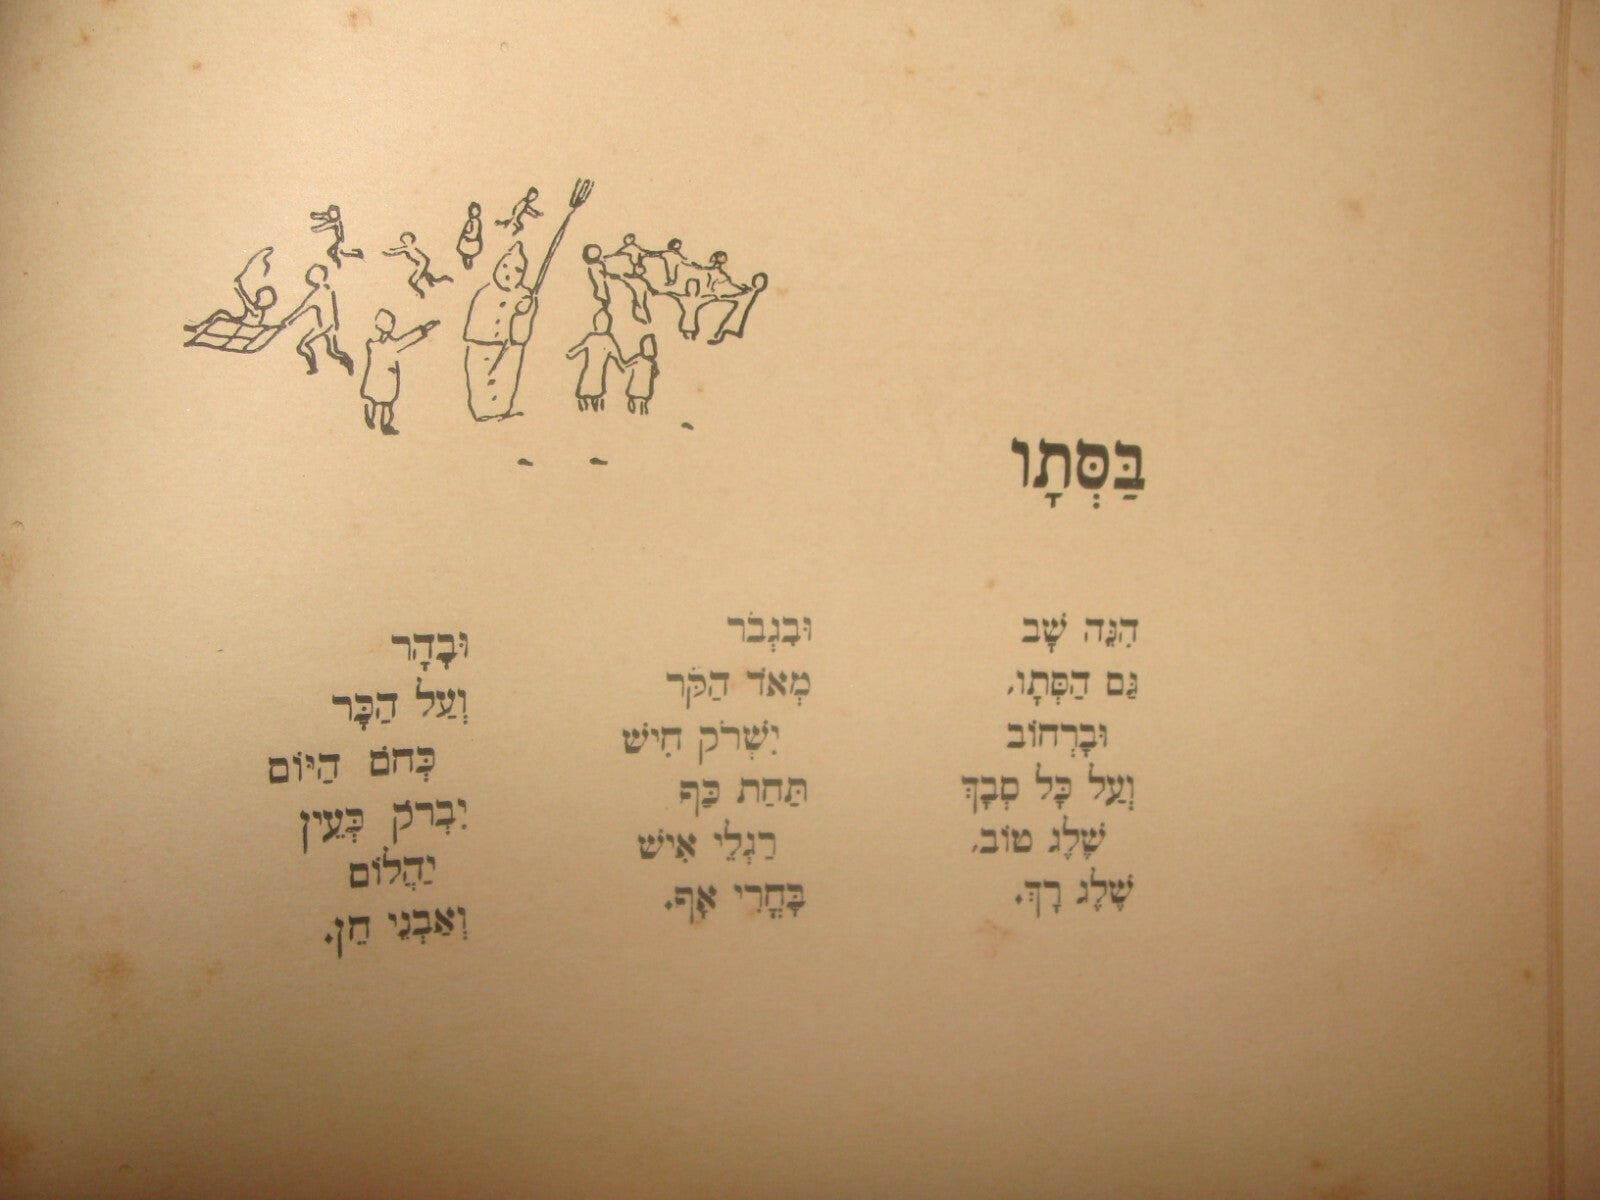 בַּסְּתָו
הִנֵּה שָׁב
גַּם הַסְּתָו,
וּבָרְחוֹב
וְעַל כָּל סְבָךְ
שֶׁלֶג טוֹב,
שֶׁלֶג רָךְ.
וּבִגְבֹר
מְאֹד הַקֹּר
יִשְׁרֹק חִישׁ
תַּחַת כַּף
רַגְלֵי אִישׁ
בָּחֳרִי אָף.
וּבָהָר
וְעַל הַכָּר
כְּחֹם הַיּוֹם
יִבְרֹק כְּעֵין
יַהֲלוֹם
וְאַבְנֵי חֵן.